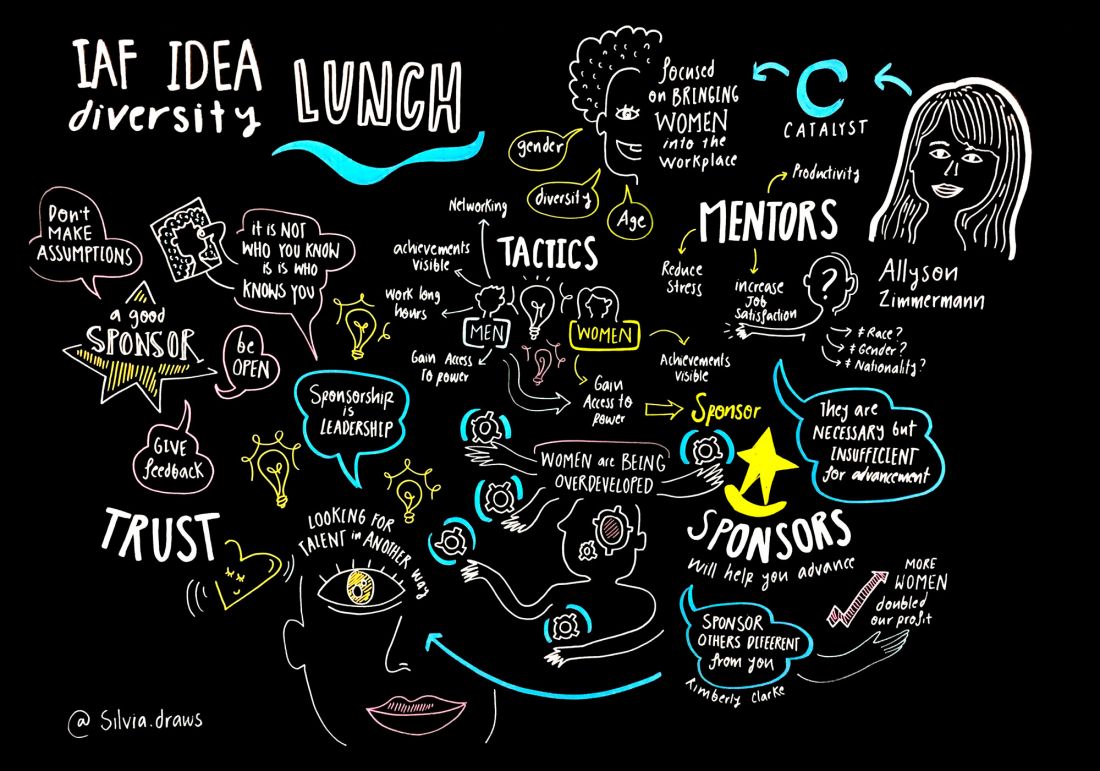 IAF IDEA
diversity
LUNCH
focused
on BRINGING
WOMEN
into the
Workplace
CATALYST
gender
diversity
Age
Allyson
Zimmermann
MENTORS
Productivity
Reduce
Stress
increase
JOB
Satisfaction
?
≠ Race?
≠ Gender?
≠ Nationality?
They are
NECESSARY but
INSUFFICIENT
for advancement
TACTICS
Networking
achievements
visible
Work long
hours
Gain Access
To power
MEN
WOMEN
Achievements
visible
Gain
Access to
power
Sponsor
Don't
MAKE
ASSUMPTIONS
it is NOT
WHO YOU KNOW
is is WHO
KNOWS YOU
a good
SPONSOR
be
OPEN
GIVE
feedback
Sponsorship
is
LEADERSHIP
WOMEN are BEING
OVERDEVELOPED
TRUST
LOOKING FOR
TALENT in ANOTHER way
SPONSORS
will help you advance
MORE
WOMEN
doubled
our profit
SPONSOR
OTHERS DIFFERENT
from you
Kimberly Clarke
@ Silvia.draws